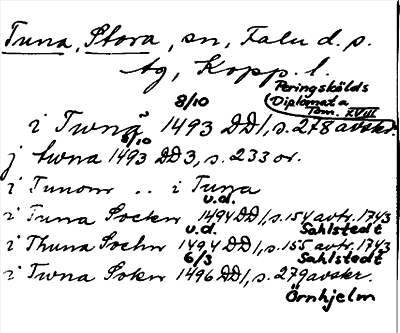 Tuna, Stora, sn, Falu d. s.
tg, Kopp. l.
Peringskölds
Diplomata
Tom. XVIII
8/10
i Twnä 1493 DD1, s. 278 avskr.
8/10
j twna 1493 DD3, s. 233 or.
i Tunom .. i Tuna
u.d.
i Tuna Sockn 1494 DD1, s. 154 avtr. 1743
u.d. Sahlstedt
i Thuna Sochn 1494 DD1, s. 155 avtr. 1743
6/3 Sahlstedt
i Twna Sokn 1496 DD1, s. 279 avskr.
Örnhjelm